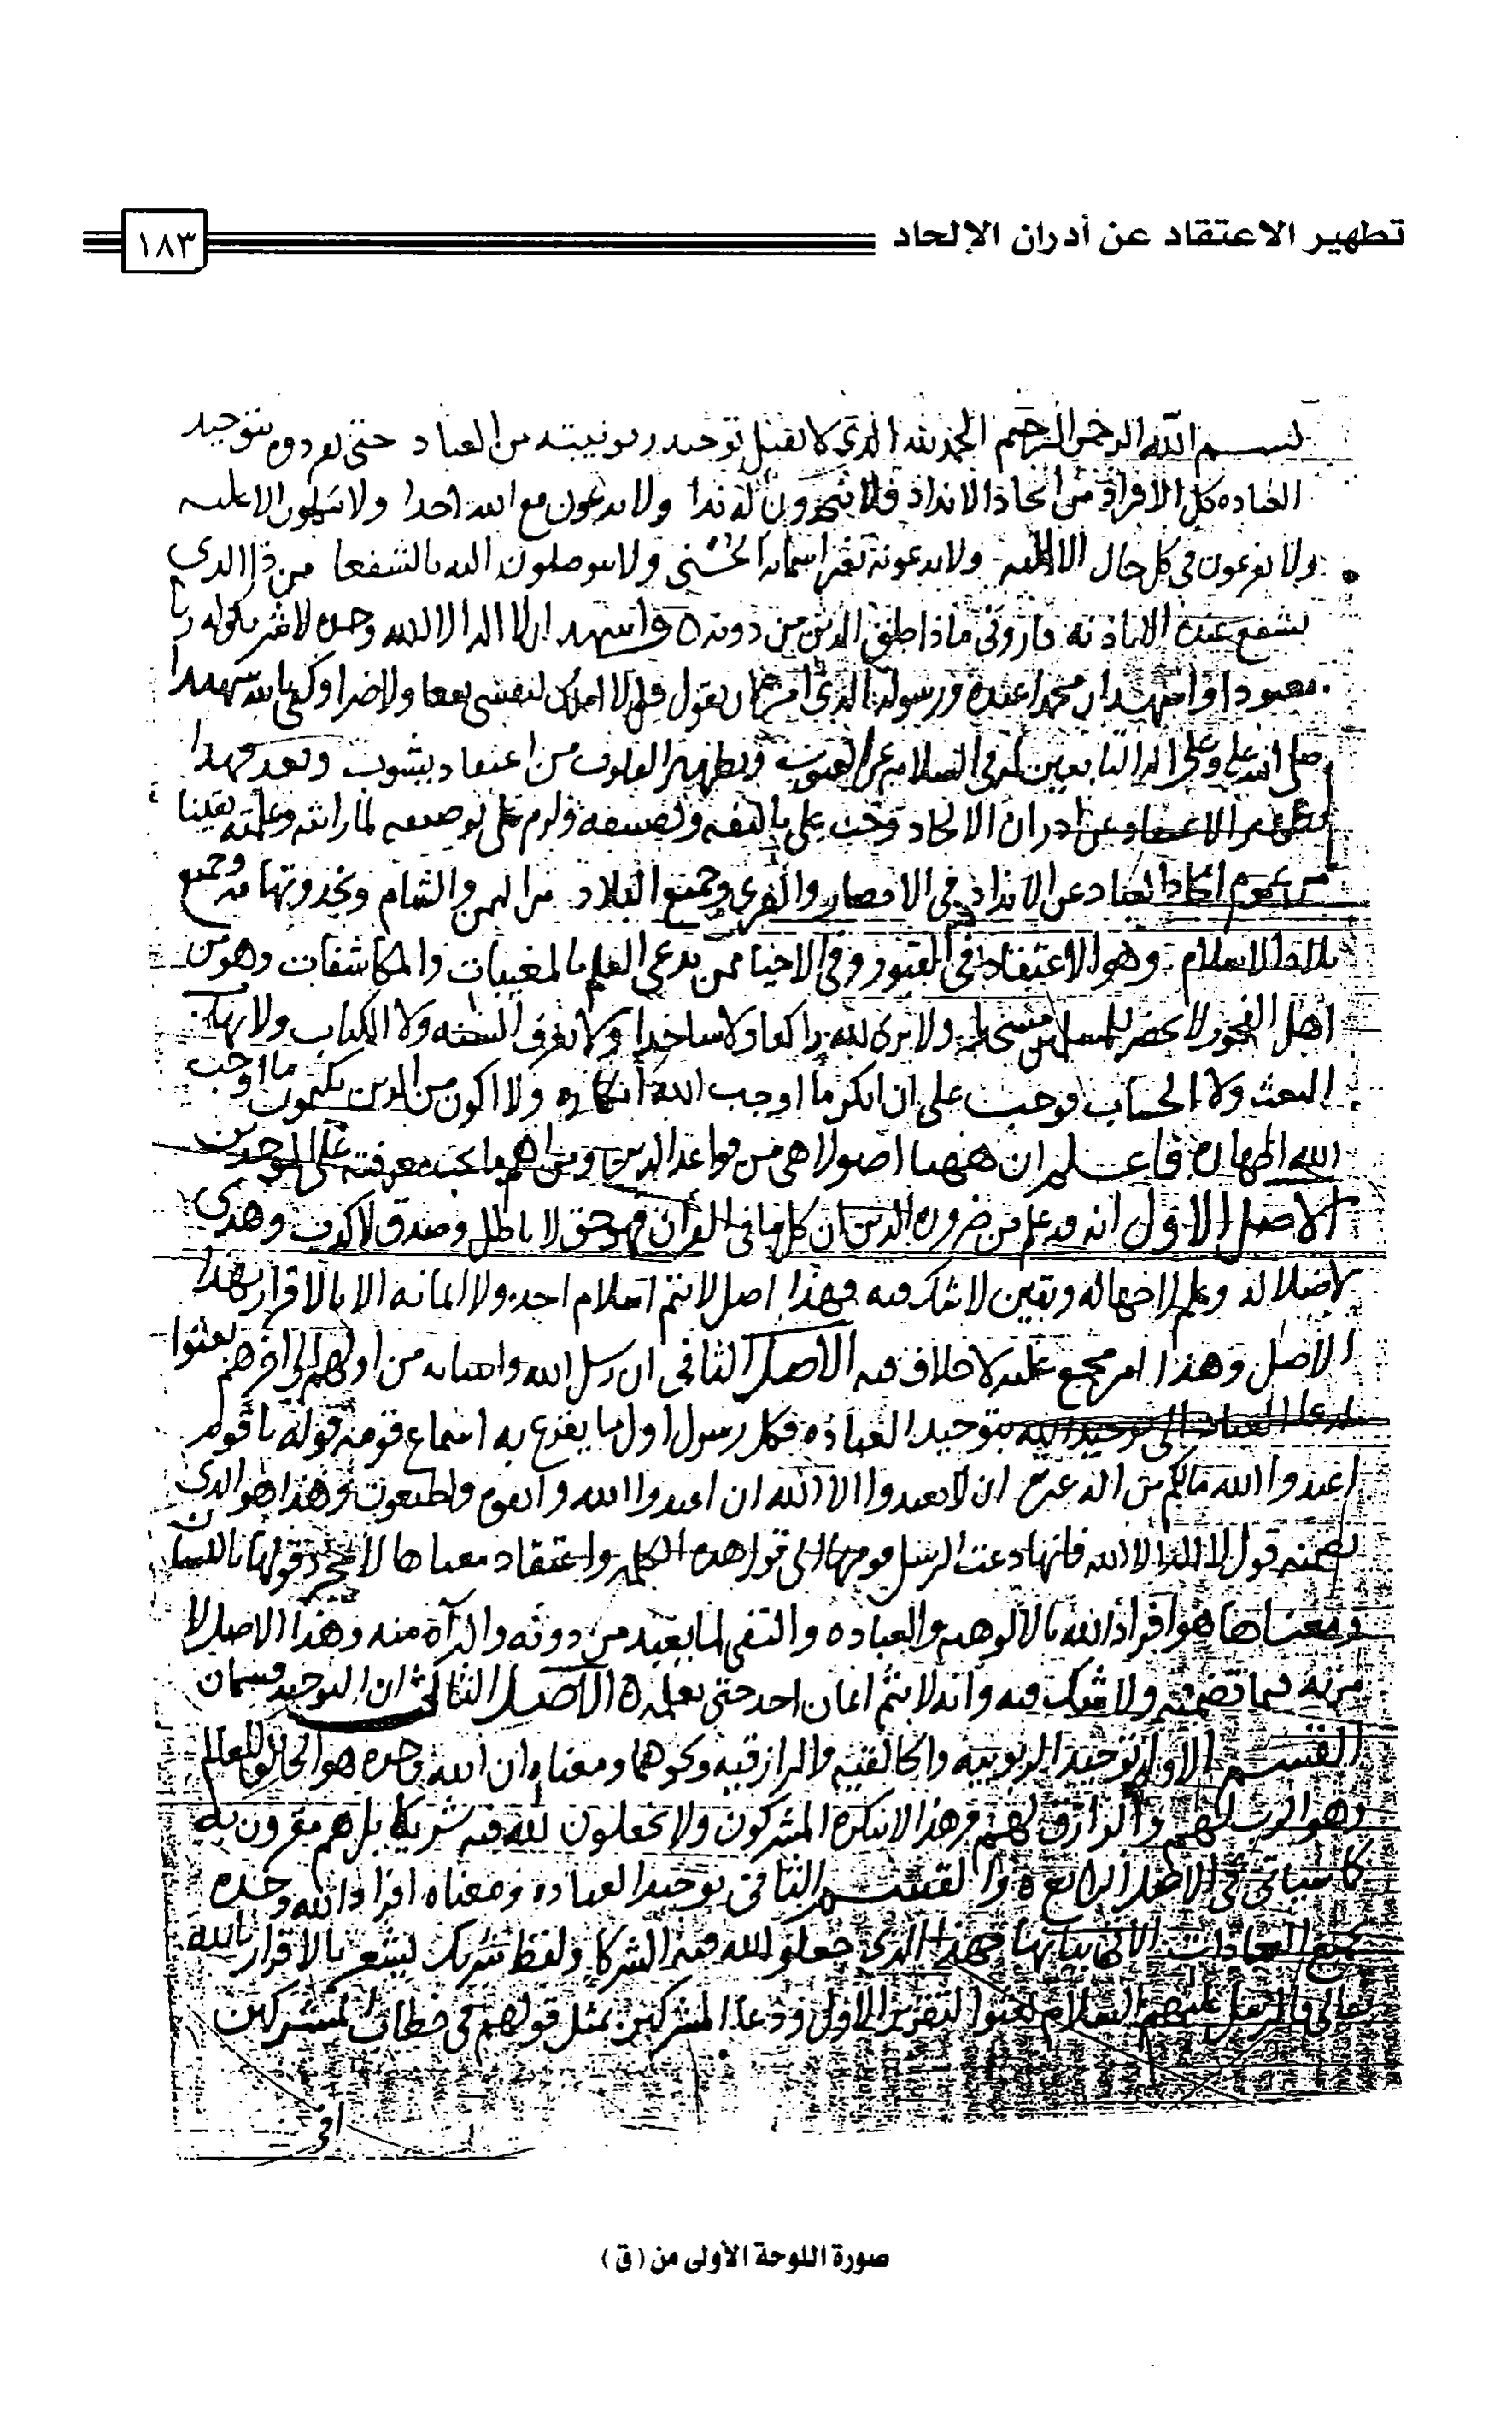 تطهير الاعتقاد عن أدران الإلحاد
١٨٣
بسم الله الرحمن الرحيم الحمد لله الذي لا يقبل توحيد ربوبيته من العباد حتى يفردوه بتوحيد
العباده كل الافراد من اتخاذ الانداد فلا يتخذون له ندا ولا يدعون مع الله احدا ولا يتكلون الا عليه
ولا يفزعون في كل حال الا اليه ولا يدعونه بغير اسمائه الحسنى ولا يتوصلون اليه بالشفعا من ذا الذي
يشفع عنده الا باذنه واشهد ان لا اله الا الله وحده لا شريك له ربا
معبودا واشهد ان محمدا عبده ورسوله الذي امره ان يقول قل لا املك لنفسي نفعا ولا ضرا وكفى بالله شهيدا
صلى الله عليه وعلى اله التابعين له في السلامه عن العيوب وتطهير القلوب من اعتقاد يشوب وبعد فهذا
تطهير الاعتقاد عن ادران الالحاد وجب علي تاليفه وتصنيفه ولزم علي توصيفه لما رايته وعلمته يقينا
من عموم اتخاذ العباد عن الانداد في الامصار والقرى وجميع البلاد من اليمن والشام ونجد وتهامه وجميع
بلاد الاسلام وهو الاعتقاد في القبور وفي الاحيا ممن يدعي العلم بالمغيبات والمكاشفات وهو من
اهل الفجور لا يحضر للمسلمين مسجدا ولا يرى لله راكعا ولا ساجدا ولا يعرف السنه ولا الكتاب ولا يهاب
البعث ولا الحساب فوجب علي ان انكر ما اوجب الله انكاره ولا اكون من الذين يكتمون ما اوجب
الله اظهاره فاعلم ان ههنا اصولا هي من قواعد الدين ومن اهم ما تجب معرفته على الموحدين
الاصل الاول انه قد علم من ضروره الدين ان كل ما في القرآن فهو حق لا باطل وصدق لا كذب وهدى
لا ضلاله وعلم لا جهاله ويقين لا شك فيه فهذا اصل لا يتم اسلام احد ولا ايمانه الا بالاقرار بهذا
الاصل وهذا امر مجمع عليه لا خلاف فيه الاصل الثاني ان رسل الله وانبيائه من اولهم الى آخرهم بعثوا
لدعا العباد الى توحيد الله بتوحيد العباده فكل رسول اول ما يقرع به اسماع قومه قوله يا قوم
اعبدوا الله ما لكم من اله غيره ان لا تعبدوا الا الله ان اعبدوا الله واتقوه واطيعون وهذا هو الذي
تضمنه قول لا اله الا الله فانها دعت الرسل قومها الى قول هذه الكلمه واعتقاد معناها لا مجرد قولها باللسان
ومعناها هو افراد الله بالالوهيه والعباده والنفي لما يعبد من دونه والبرآة منه وهذا الاصل لا
مريه فيما تضمنه ولا شك فيه وانه لا يتم ايمان احد حتى يعلمه الاصل الثالث ان التوحيد قسمان
القسم الاول توحيد الربوبيه والخالقيه والرازقيه ونحوهما ومعناه ان الله وحده هو الخالق للعالم
وهو الرب لهم والرازق لهم وهذا لا ينكره المشركون ولا يجعلون لله فيه شريكا بل هم مقرون به
كما سياتي في الاصل الرابع والقسم الثاني توحيد العباده ومعناه افراد الله وحده
بجميع العبادات الاتي بيانها فهذا الذي جعلوا لله فيه الشركا ولفظ شريك يشعر بالاقرار بالله
تعالى فالرسل عليهم السلام بعثوا لتقرير الاول ودعا المشركين بمثل قولهم في خطاب المشركين
افي
صورة اللوحة الأولى من (ق)